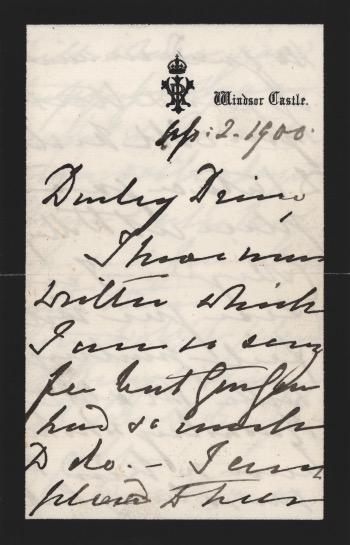 VRI
Windsor Castle.
Ap: 2. 1900.
Darling Drino,
I have never
written which
I am so sorry
for but Gangan
had so much
to do. – I am
pleased to hear